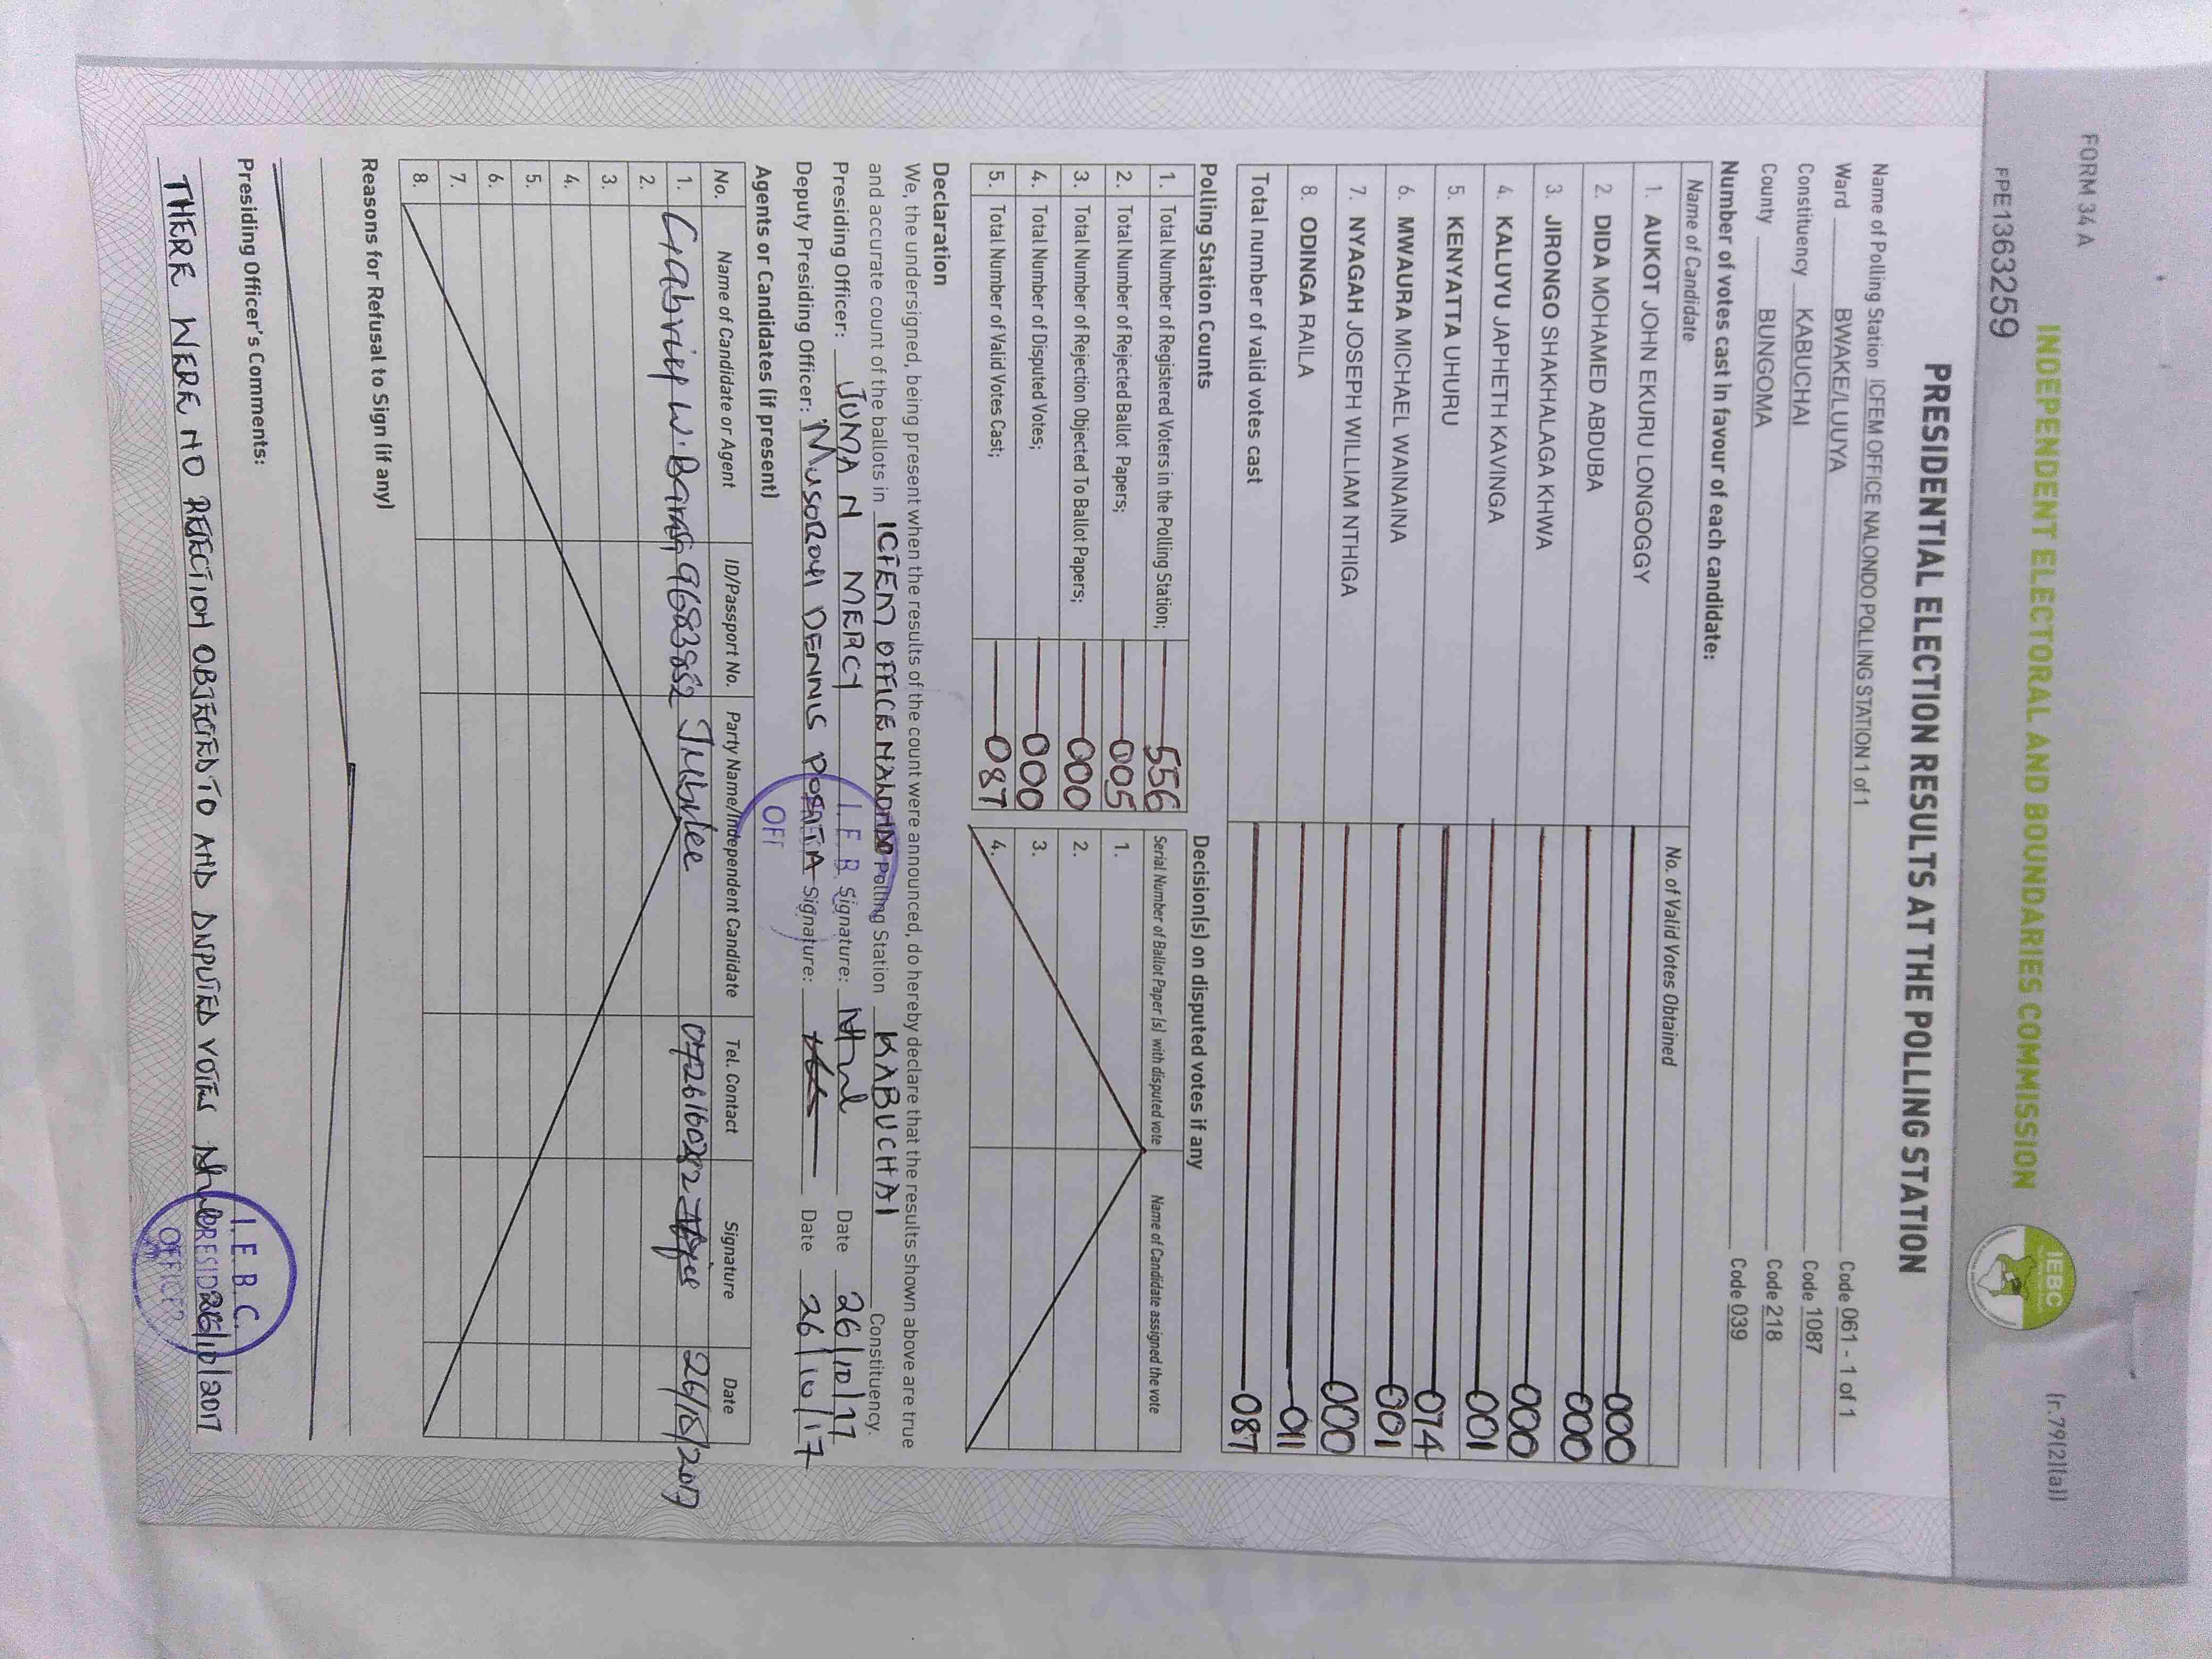 FORM 34 A
(r.79(2)(a))
INDEPENDENT ELECTORAL AND BOUNDARIES COMMISSION
IEBC
PPE1363259
PRESIDENTIAL ELECTION RESULTS AT THE POLLING STATION
Name of Polling Station ICFEM OFFICE NALONDO POLLING STATION 1 of 1 Code 061 - 1 of 1
Ward BWAKE/LUUYA Code 1087
Constituency KABUCHAI Code 218
County BUNGOMA Code 039
Number of votes cast in favour of each candidate:
Name of Candidate No. of Valid Votes Obtained
1. AUKOT JOHN EKURU LONGOGGY 000
2. DIDA MOHAMED ABDUBA 000
3. JIRONGO SHAKHALAGA KHWA 000
4. KALUYU JAPHETH KAVINGA 001
5. KENYATTA UHURU 074
6. MWAURA MICHAEL WAINAINA 001
7. NYAGAH JOSEPH WILLIAM NTHIGA 000
8. ODINGA RAILA 011
Total number of valid votes cast 087
Polling Station Counts
1. Total Number of Registered Voters in the Polling Station; 556
2. Total Number of Rejected Ballot Papers; 005
3. Total Number of Rejection Objected To Ballot Papers; 000
4. Total Number of Disputed Votes; 000
5. Total Number of Valid Votes Cast; 087
Decision(s) on disputed votes if any
Serial Number of Ballot Paper (s) with disputed vote Name of Candidate assigned the vote
1.
2.
3.
4.
Declaration
We, the undersigned, being present when the results of the count were announced, do hereby declare that the results shown above are true
and accurate count of the ballots in ICFEM OFFICE NALONDO Polling Station KABUCHAI Constituency.
Presiding Officer: JUMA N MERCY Signature: Date 26/10/17
Deputy Presiding Officer: MUSOROYI DENNIS Signature: Date 26/10/17
I.E.B
OFF
Agents or Candidates (if present)
No. Name of Candidate or Agent ID/Passport No. Party Name/Independent Candidate Tel. Contact Signature Date
1. Gabriel W. 9683882 Jubilee 0726160282 26/10/2017
2.
3.
4.
5.
6.
7.
8.
Reasons for Refusal to Sign (if any)
Presiding Officer's Comments:
THERE WERE NO REJECTION OBJECTED TO AND DISPUTED VOTES 26/10/2017
I.E.B.C.
PRESIDING
OFFICER